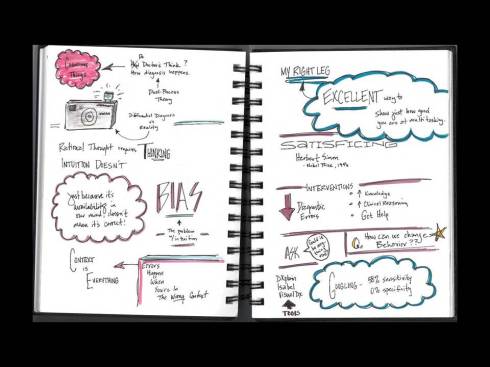 Do
Doctor's Think?
How diagnosis happens
Dual-Process
Theory
Differential Diagnosis
vs
Reality
Rational Thought requires THINKING
INTUITION DOESN'T
Just because it's
availability in
our mind doesn't
make it correct!
BIAS
The problem
w/ Intuition
CONTEXT
IS
EVERYTHING
Errors
Happen
When
You're In
The Wrong Context
MY RIGHT LEG
EXCELLENT way to
Show just how good
you are at multi tasking.
SATISFICING
Herbert Simon
- Nobel Prize,
INTERVENTIONS
Diagnostic
Errors
• ↑ Knowledge
• ↑ Clinical Reasoning
• Get Help
ASK
Could it
be any
else?
Q: How can we change
Behavior??
DXplain
Isabel
VisualDx
TOOLS
GOOGLING - 58% sensitivity
0% specificity